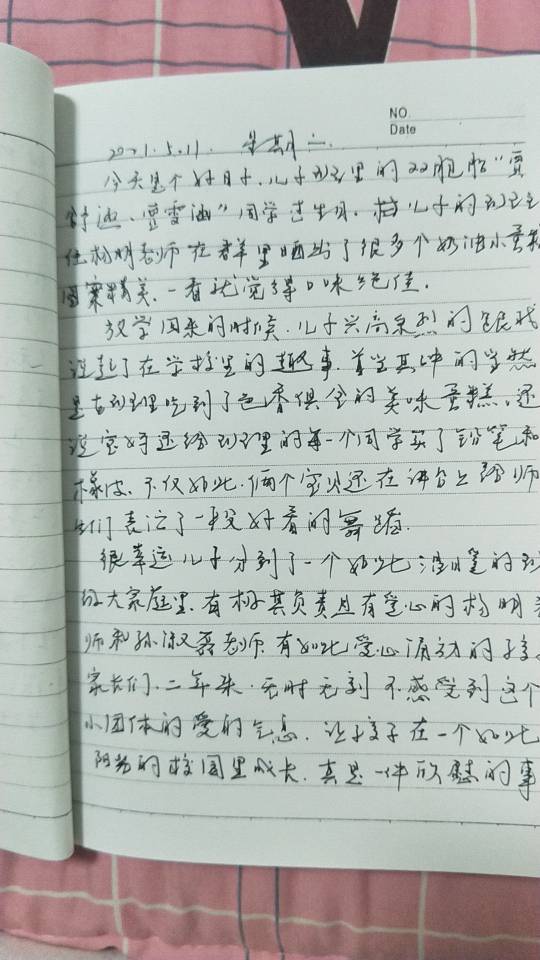 NO.
Date
2021.5.11. 星期二.
今天是个好日子.儿子班里的双胞胎"贾
舒涵、贾雪涵"同学过生日.
任杨明老师在群里晒出了很多个奶油小蛋糕
图案精美.一看就觉得口味绝佳.
放学回来的时候.儿子兴高采烈的跟我
说起了在学校里的趣事.首当其冲的当然
是在班里吃到了色香俱全的美味蛋糕.还
说宝妈还给班里的每一个同学买了铅笔和
橡皮.不仅如此.俩个宝贝还在讲台上给师
生们表演了一段好看的舞蹈.
很幸运儿子分到了一个如此温暖的班
级大家庭里.有极其负责且有爱心的杨明老
师和孙淑磊老师.有如此爱心涌动的孩子
家长们.二年来.无时无刻不感觉到这个
小团体的爱的气息.让孩子在一个如此
阳光的校园里成长.真是一件欣慰的事